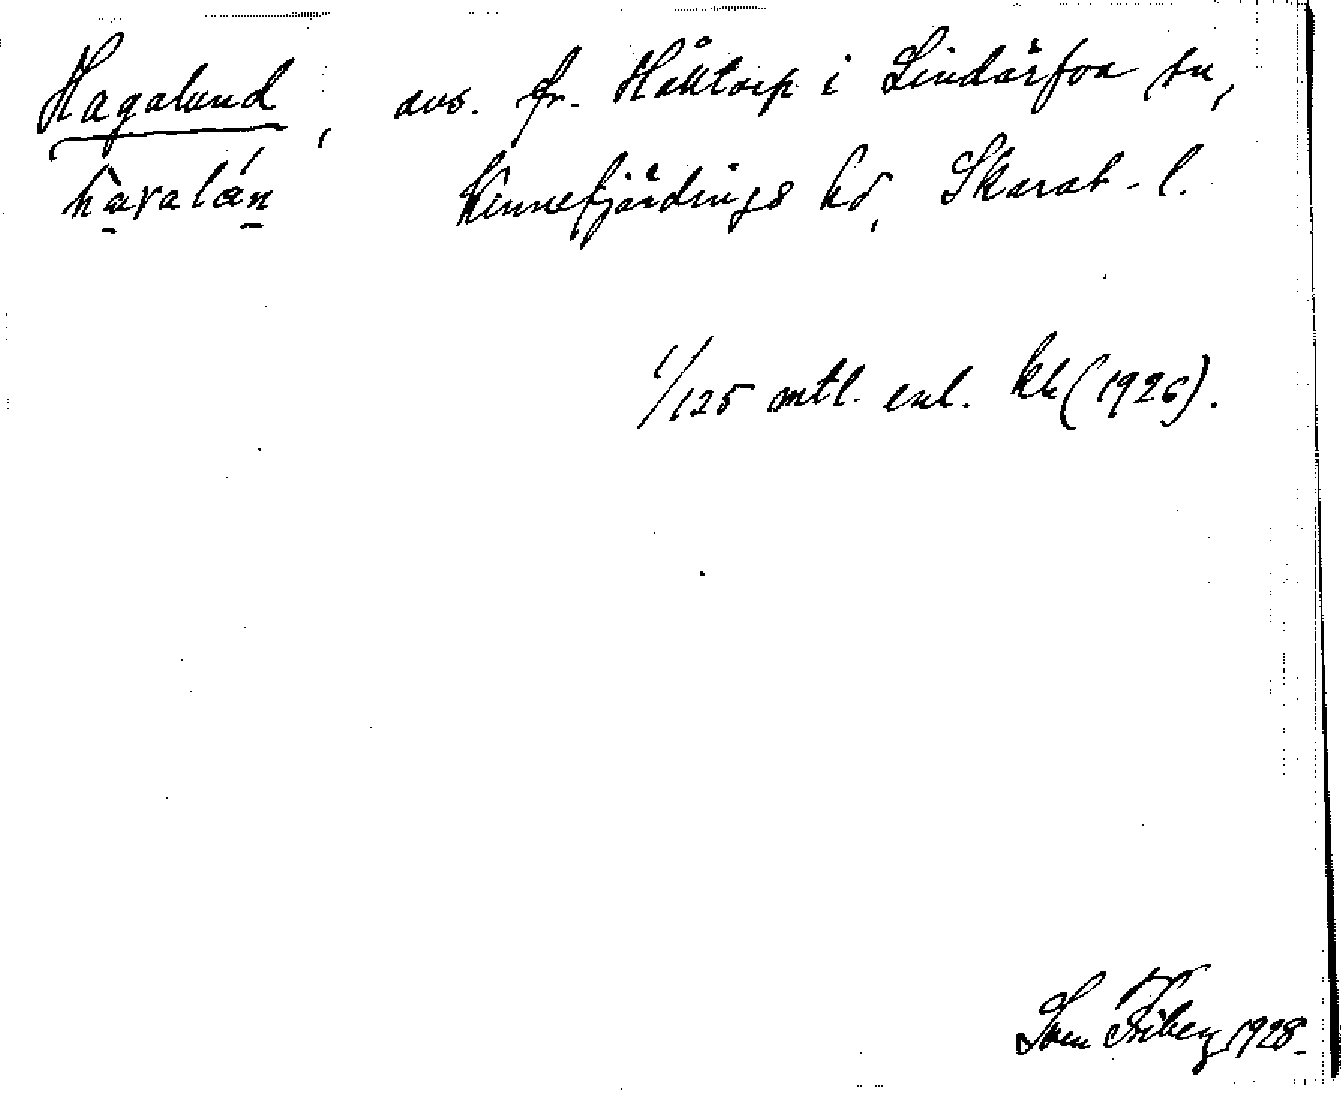 Hagalund, avs. fr. Håltorp i Lindärfva sn,
hàɣalán Kinnefjärdings hd, Skarab-l.
1/125 mtl. enl. kk (1926).
Sven Friberg 1928